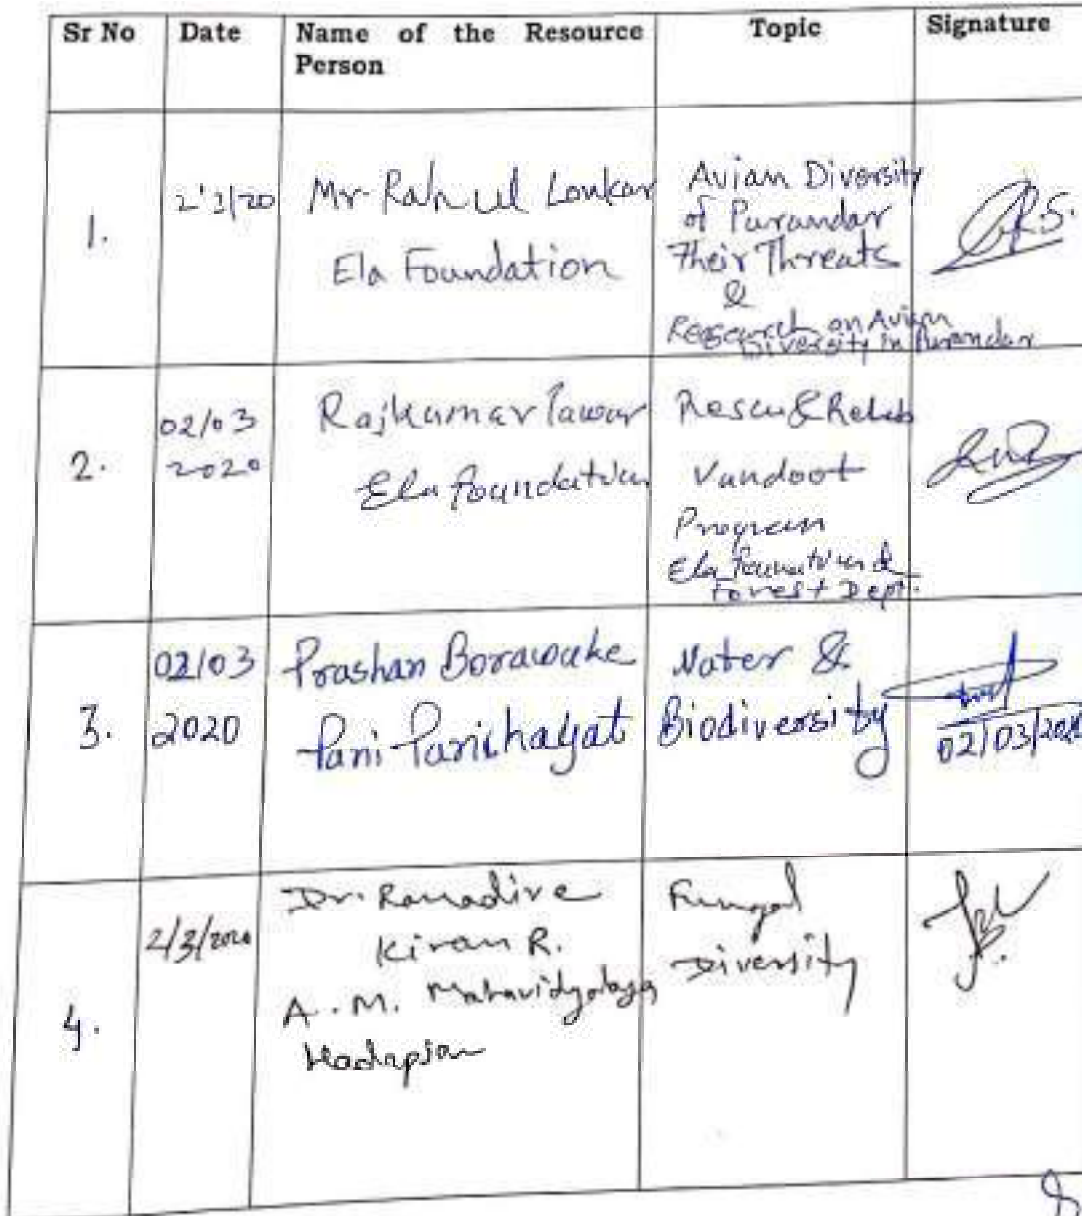 Sr No Date Name of the Resource Person Topic Signature
1. 2'3/20 Mr. Rahul Lonkar
Ela Foundation
Avian Diversity
of Purandar
Their Threats
&
Research on Avian
Diversity in Purandar
R.S.
2. 02/03
2020
Rajkumar Pawar
Ela foundation
Rescu & Rehab
Vandoot
Program
Ela foundation &
Forest Dept.
3. 02/03
2020
Prashan Borawake
Pani Panchayat
Water &
Biodiversity
02/03/2020
4. 2/3/2020
Dr. Ranadive
Kiran R.
A.M. Mahavidyalaya
Hadapsar
Fungal
Diversity